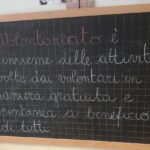 Volontariato è
insieme delle attività
svolte dai volontari in
maniera gratuita e
spontanea a beneficio
di tutti